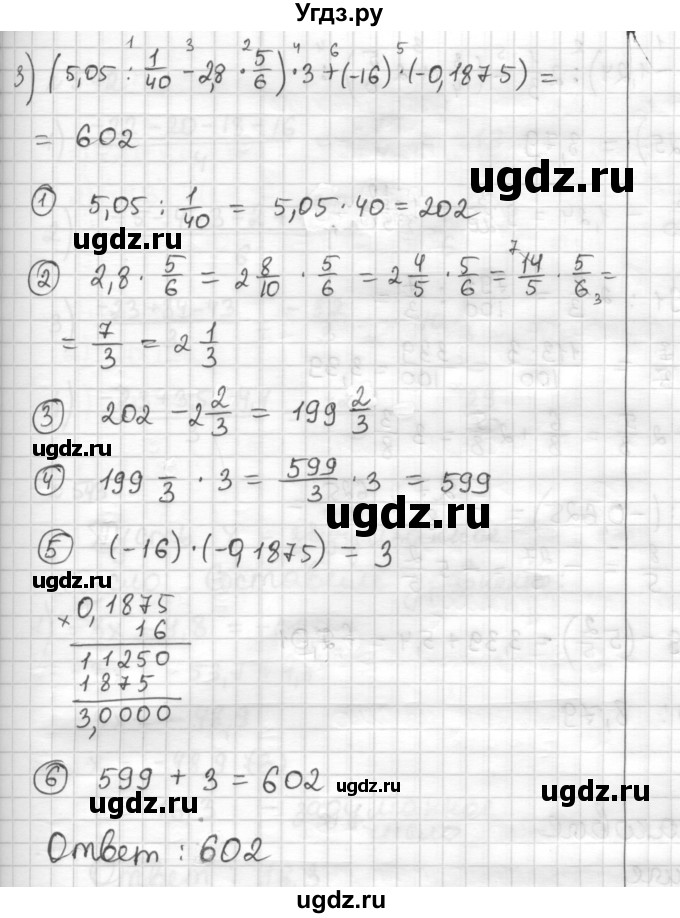 Угдз.ру
3) (5,05 : 1/40 - 2,8 · 5/6) · 3 + (-16) · (-0,1875) =
1 3 2 4 6 5
= 602
① 5,05 : 1/40 = 5,05 · 40 = 202
ugdz.ru ugdz.ru
② 2,8 · 5/6 = 2 8/10 · 5/6 = 2 4/5 · 5/6 = 7 14/5 · 5/6 3 =
= 7/3 = 2 1/3
③ 202 - 2 2/3 = 199 2/3
ugdz.ru
④ 199 /3 · 3 = 599/3 · 3 = 599
ugdz.ru
⑤ (-16) · (-0,1875) = 3
ugdz.ru
× 0,1875
16
11250
1875
3,0000
⑥ 599 + 3 = 602
ugdz.ru ugdz.ru ugdz.ru
Ответ : 602
ugdz.ru